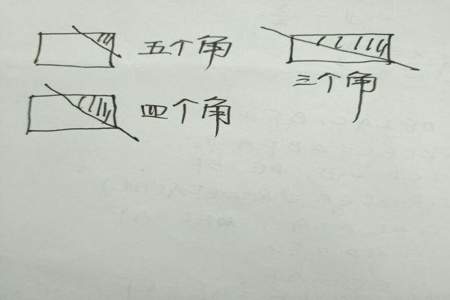 五个角
三个角
四个角